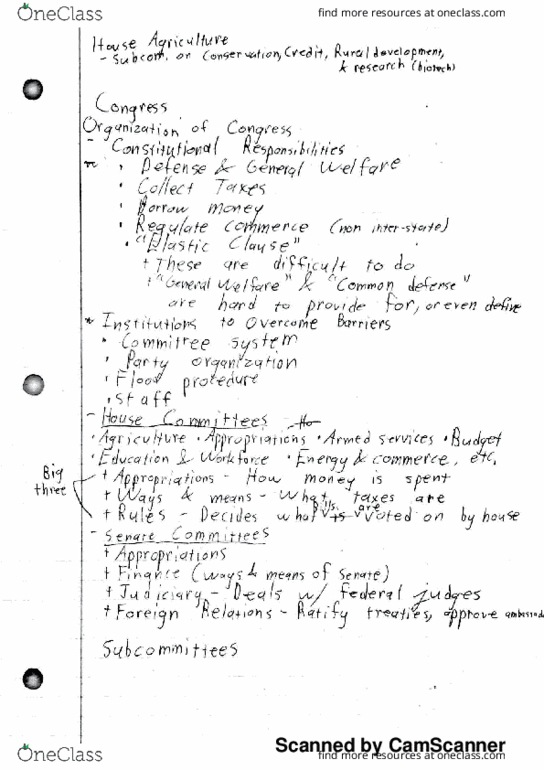 OneClass
find more resources at oneclass.com
House Agriculture
- Subcom. on Conservation, Credit, Rural development,
& research (biotech)
Congress
Organization of Congress
- Constitutional Responsibilities
• Defense & General Welfare
• Collect Taxes
• Borrow money
• Regulate commerce (non inter-state)
• "Elastic Clause"
+ These are difficult to do
! "General Welfare" & "Common defense"
are hard to provide for, or even define
* Institutions to Overcome Barriers
• Committee system
• Party organization
• Floor procedure
• Staff
- House Committees
• Agriculture • Appropriations • Armed services • Budget
• Education & Workforce • Energy & commerce, etc,
Big three
+ Appropriations - How money is spent
+ Ways & means - What taxes are
+ Rules - Decides what bills are voted on by house
- Senate Committees
+ Appropriations
+ Finance (ways & means of Senate)
+ Judiciary - Deals w/ federal judges
+ Foreign Relations - Ratify treaties, approve ambassad
Subcommittees
Scanned by CamScanner
OneClass
find more resources at oneclass.com